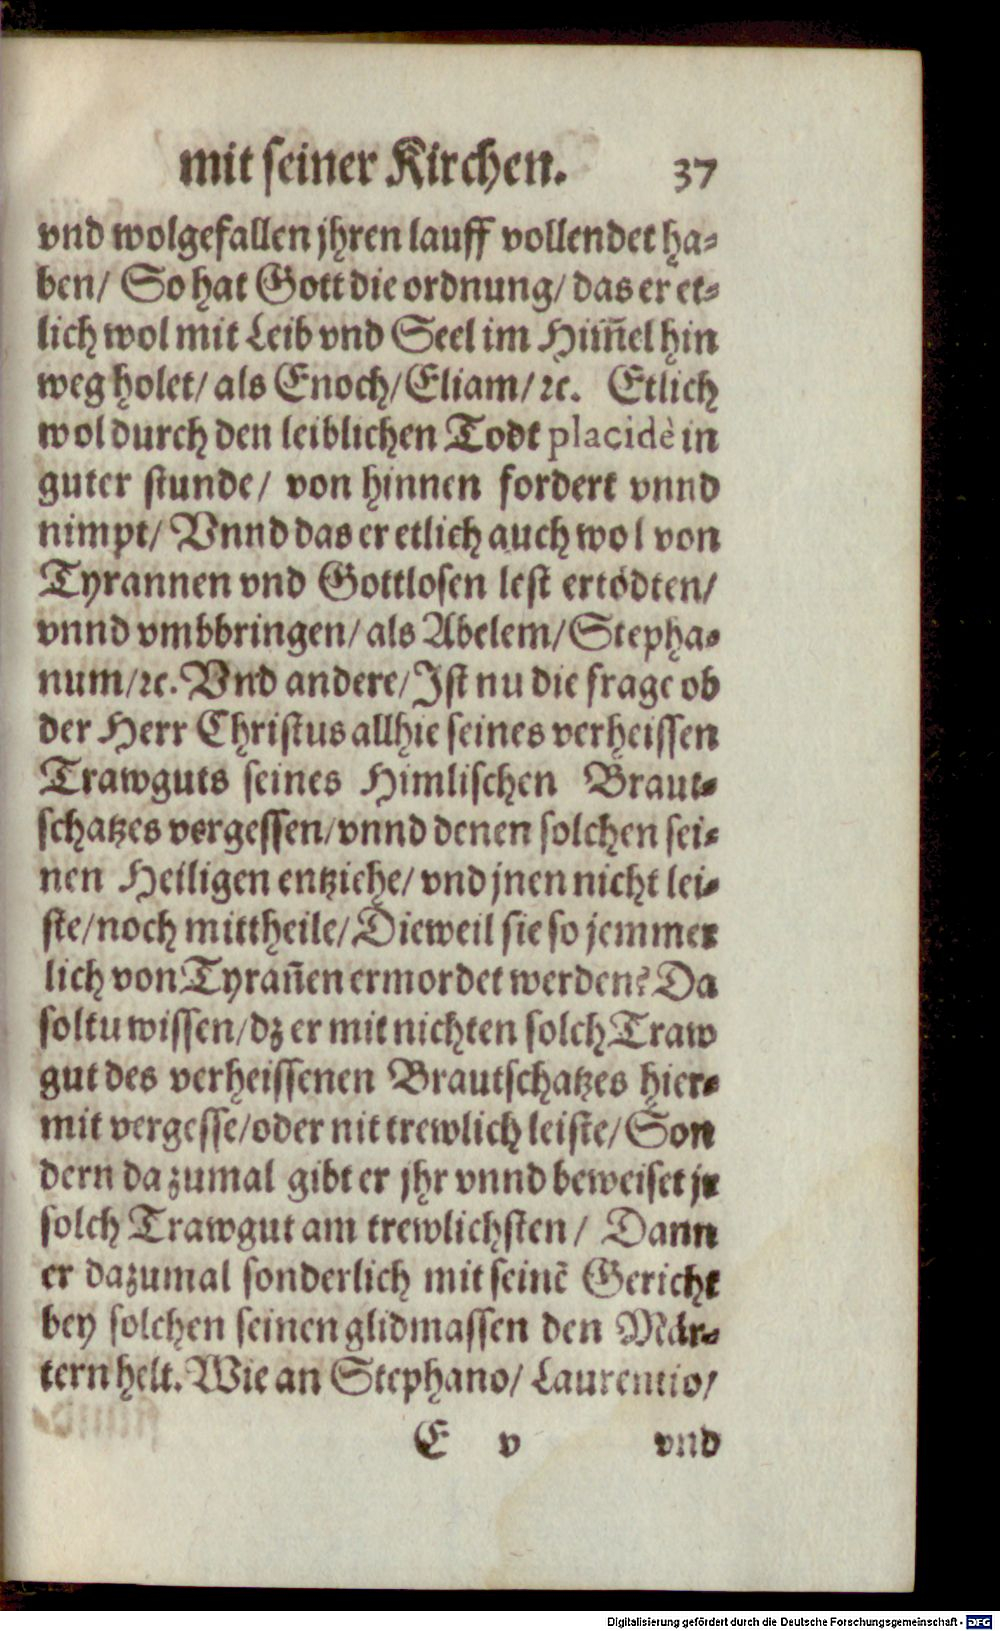 mit seiner Kirchen. 37
vnd wolgefallen jhren lauff vollendet ha-
ben/ So hat Gott die ordnung/ das er et-
lich wol mit Leib vnd Seel im Him̃el hin
weg holet/ als Enoch/ Eliam/ ꝛc. Etlich
wol durch den leiblichen Todt placidè in
guter stunde/ von hinnen fordert vnnd
nimpt/ Vnnd das er etlich auch wol von
Tyrannen vnd Gottlosen lest ertödten/
vnnd vmbbringen/ als Abelem/ Stepha-
num/ ꝛc. Vnd andere/ Ist nu die frage ob
der Herr Christus allhie seines verheissen
Trawguts seines Himlischen Braut-
schatzes vergessen/ vnnd denen solchen sei-
nen Heiligen entziehe/ vnd jnen nicht lei-
ste/ noch mittheile/ Dieweil sie so jemmer
lich von Tyrañen ermordet werden? Da
soltu wissen/ dz er mit nichten solch Traw
gut des verheissenen Brautschatzes hier-
mit vergesse/ oder nit trewlich leiste/ Son
dern da zumal gibt er jhr vnnd beweiset jr
solch Trawgut am trewlichsten/ Dann
er dazumal sonderlich mit seinẽ Gericht
bey solchen seinen glidmassen den Mär-
tern helt. Wie an Stephano/ Laurentio/
E v vnd
Digitalisierung gefördert durch die Deutsche Forschungsgemeinschaft - DFG